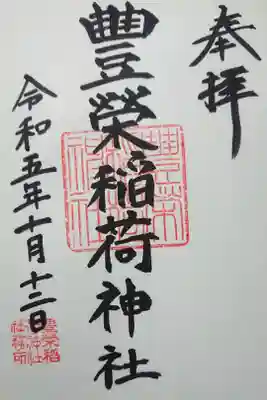 奉拝
豊榮稲荷神社
令和五年十月十二日
豊榮稲
荷神社
社務所